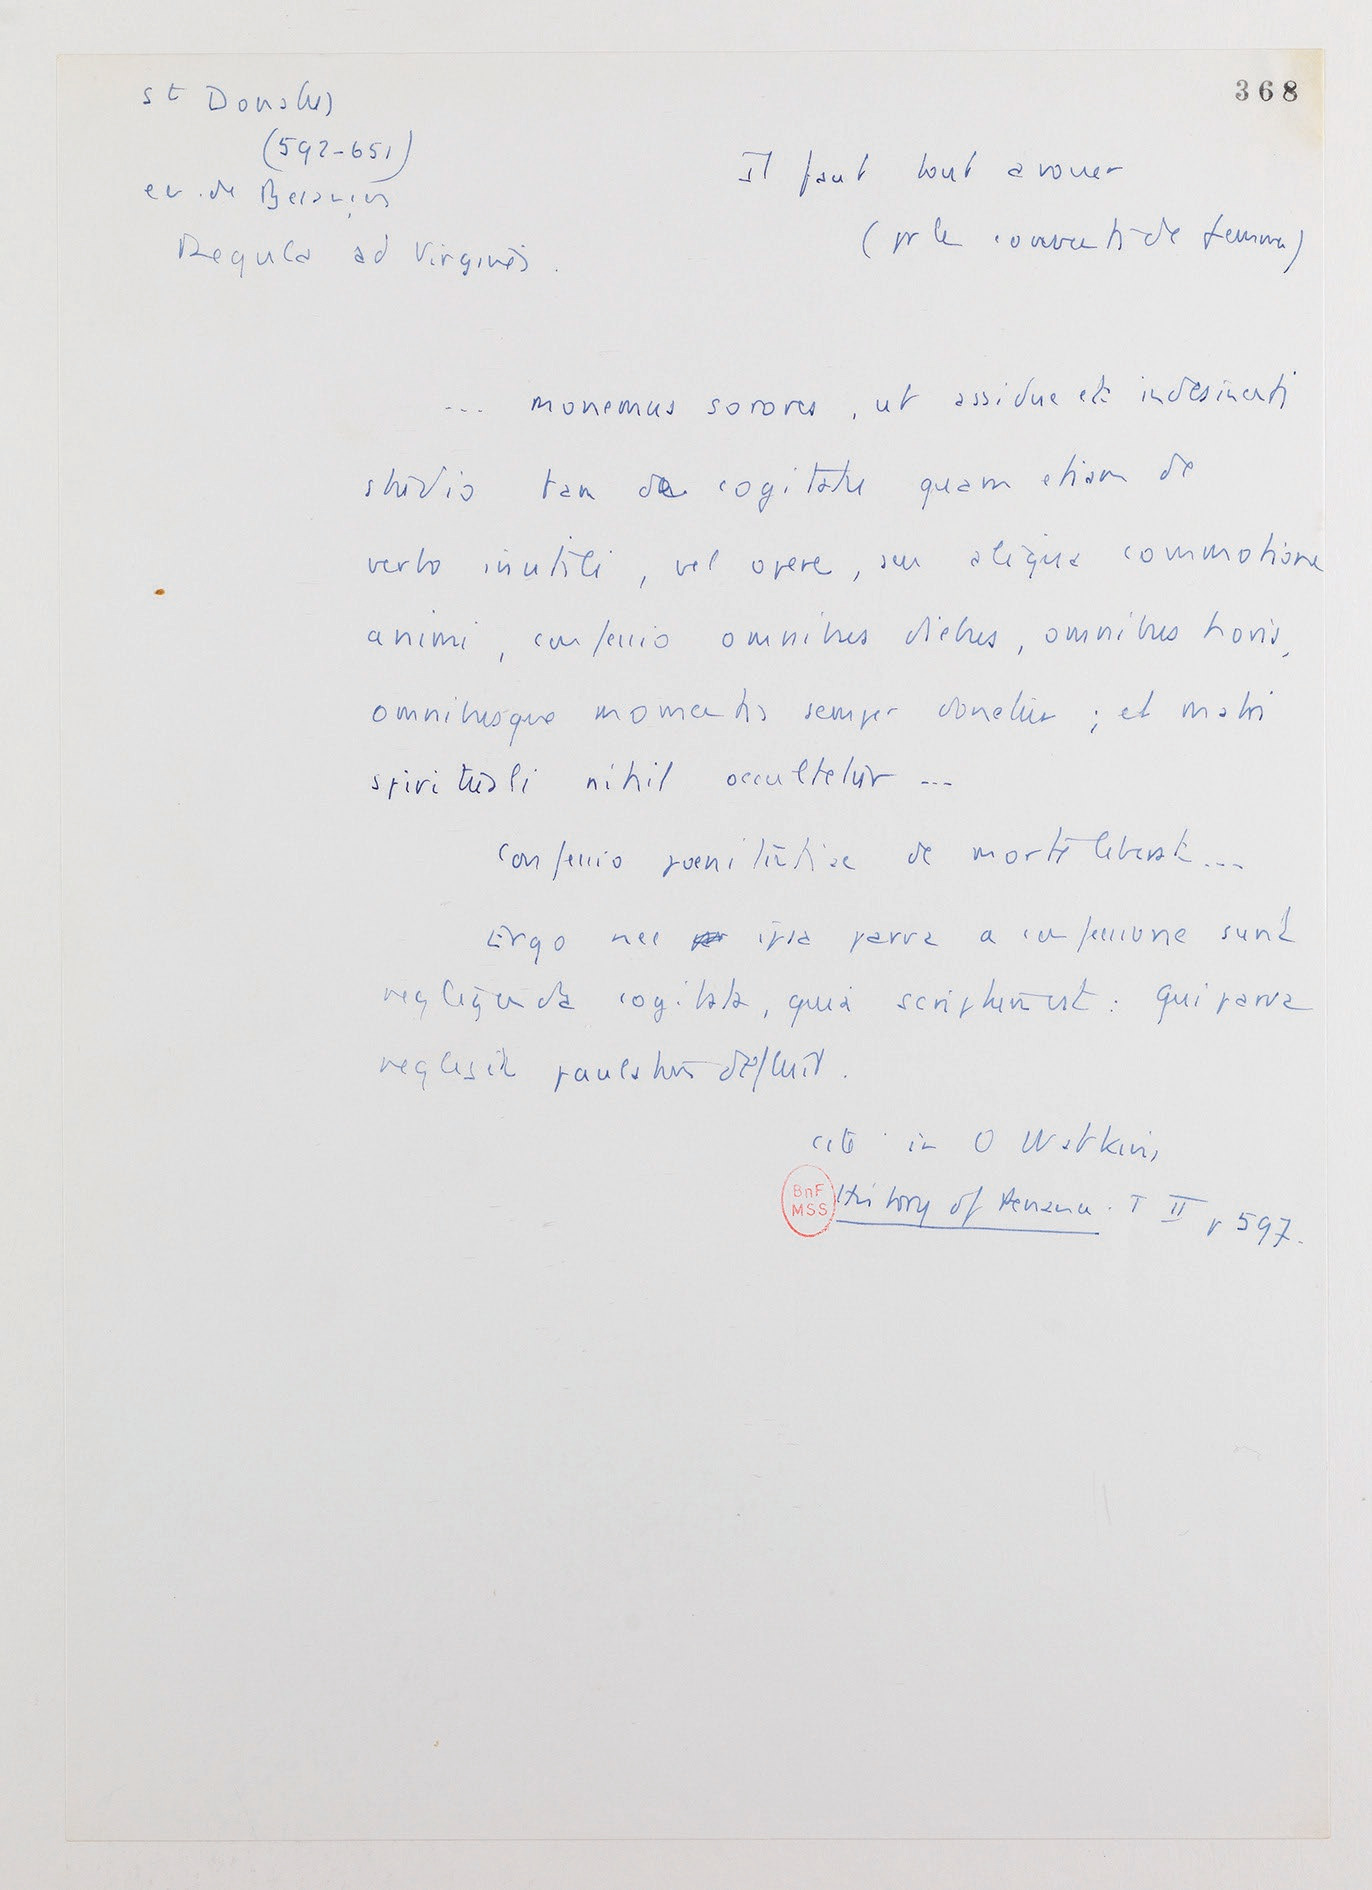 368
St Donatus
(592-651)
ev. de Besançon
Regula ad Virgines.
Il faut tout avouer
(pr les couvents de femmes)
... monemus sorores, ut assidue et indesinenti
studio tam de cogitatu quam etiam de
verbo inutili, vel opere, seu aliqua commotione
animi, confessio omnibus diebus, omnibus horis,
omnibusque momentis semper donetur ; et matri
spirituali nihil occultetur ...
Confessio poenitentiae de morte liberat ...
Ergo nec ipsa parva a confessione sunt
negligenda cogitata, quia scriptum est : Qui parva
negligit paulatim defluit.
cité in O Watkins,
History of Penance. T II p 597.
BnF
MSS